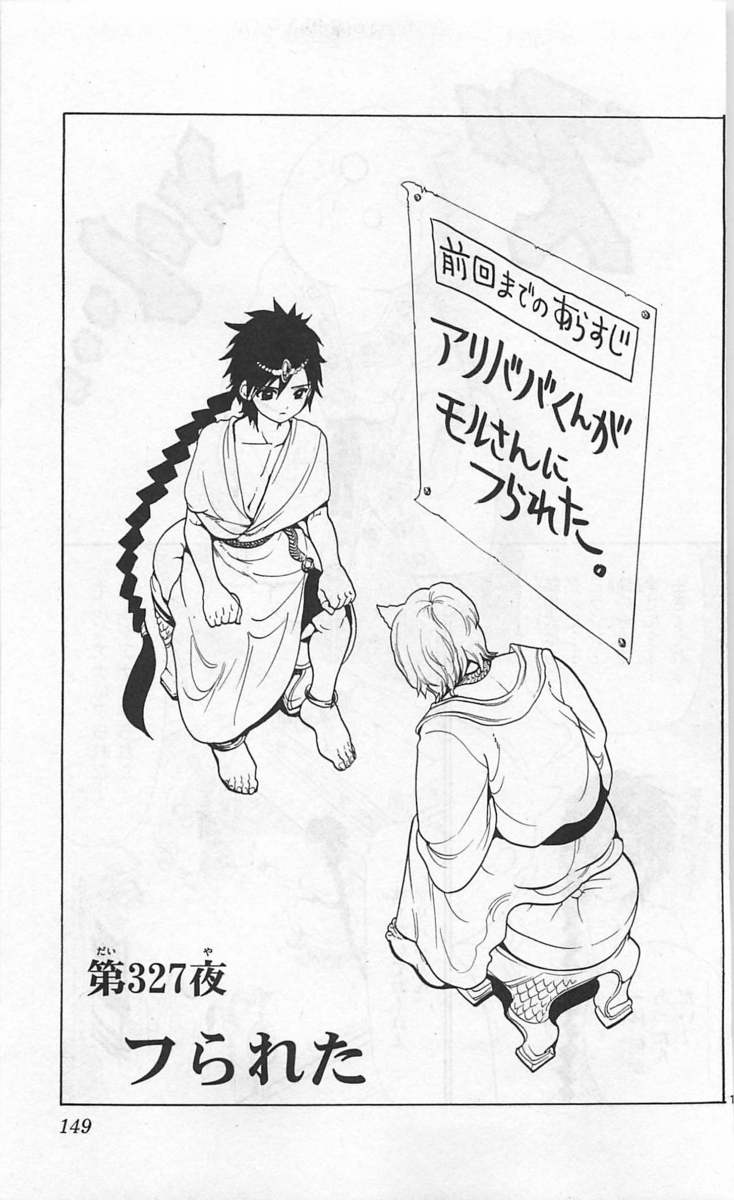 前回までのあらすじ
アリババくんが
モルさんに
フられた。
第327夜
だい や
フられた
149